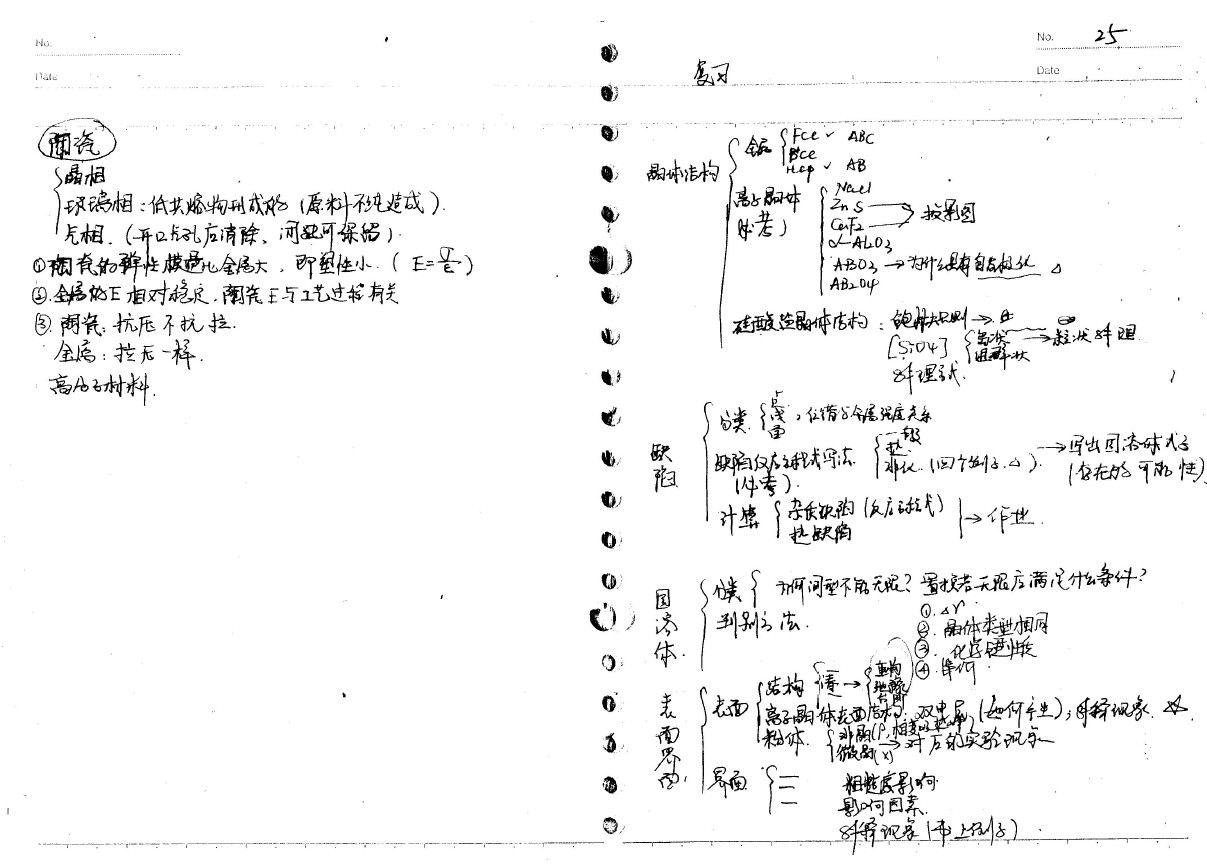 No.
Date
陶瓷
晶相
玻璃相：低共熔物形成的（原料不纯造成）.
气相.（开口气孔应消除、闭口可保留）.
①陶瓷的弹性模量比金属大，即塑性小.（E=σ/ε）
②.金属的E相对稳定.陶瓷E与工艺过程有关
③.陶瓷：抗压不抗拉.
金属：拉压一样.
高分子材料.
No. 25
Date
复习
晶体结构
金属
Fcc ✓ ABC
Bcc
Hcp ✓ AB
离子晶体
（必考）
NaCl
ZnS
CaF2
→投影图
α-Al2O3
ABO3→为什么具有自发极化 △
AB2O4
硅酸盐晶体结构：
[SiO4]
岛状
层状
解理
缺陷
分类
点
线
面
，位错与金属强度关系
缺陷反应方程式写法.
（必考）.
一般
热
非化（四个例子.△）.
→写出固溶体式子
（存在的可能性）
计算
杂质缺陷（反应方程式）
热缺陷
→作业.
固溶体.
分类
为何间型不能无限？置换若无限应满足什么条件？
判别方法.
①.△r.
②.晶体类型相同
③.化学键性质
④.電价.
表面界面.
表面
结构
重构
弛豫
台阶
离子晶体表面结构：双电层（如何产生）；解释现象.☆.
粉体.
微晶（X）→对应的实验现象
界面
粗糙度影响
影响因素.
解释现象（书上例子）.